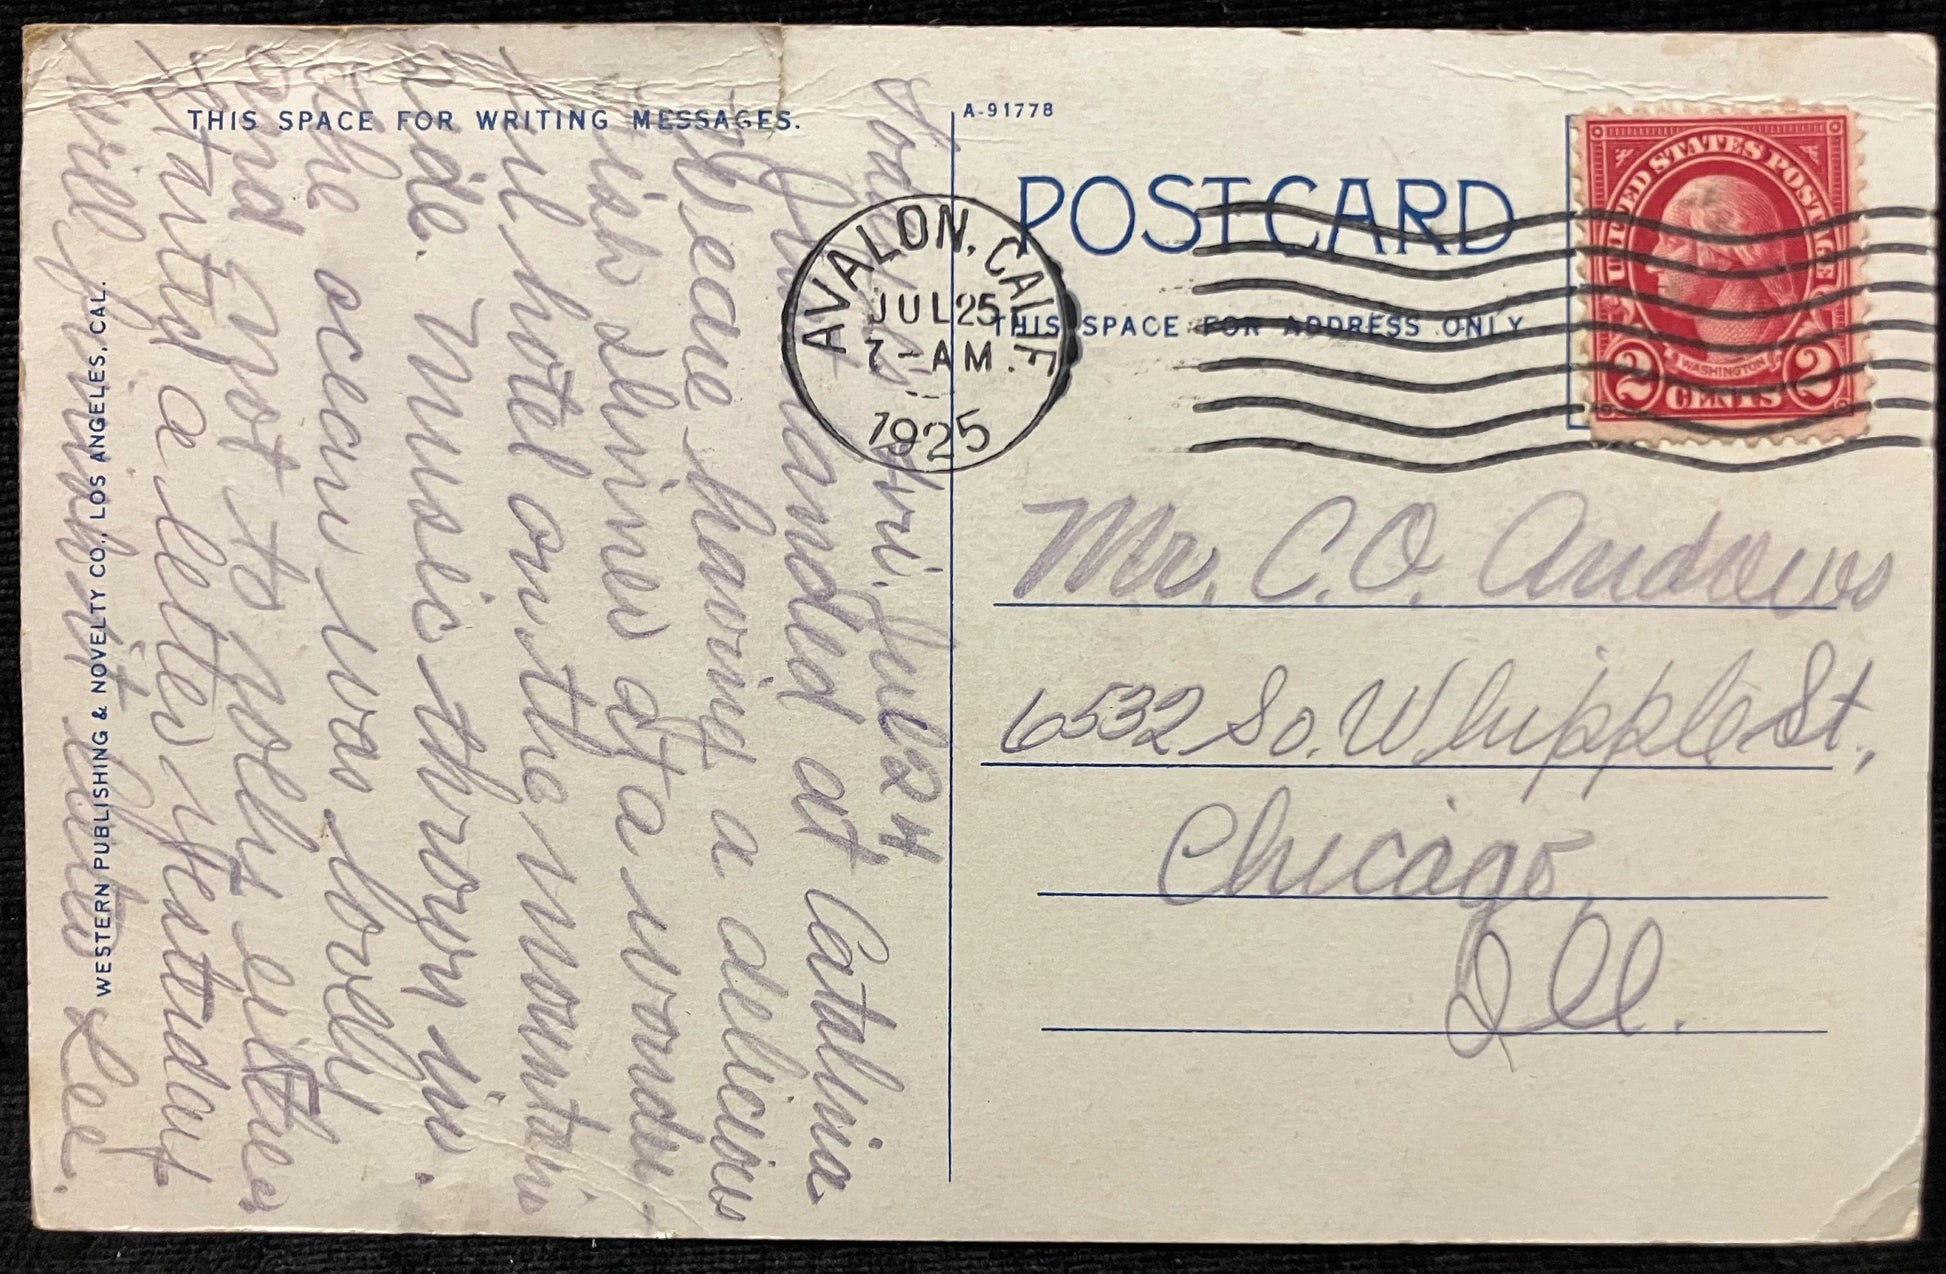 THIS SPACE FOR WRITING MESSAGES.
Today is Fri. Jul 24
Just landed at Catalina
We are having a delicious
fish dinner at a wonder-
ful hotel on the mountain
side. Music thrown in.
The ocean was lovely
and not to rolly either
Started a letter yesterday
will finish it later Lee.
WESTERN PUBLISHING & NOVELTY CO., LOS ANGELES, CAL.
A-91778
POSTCARD
THIS SPACE FOR ADDRESS ONLY
AVALON, CALIF.
JUL 25
7-AM
1925
UNITED STATES POSTAGE
WASHINGTON
2 CENTS 2
Mr. C.O. Andrews
6532 So. Whipple St.,
Chicago,
Ill.